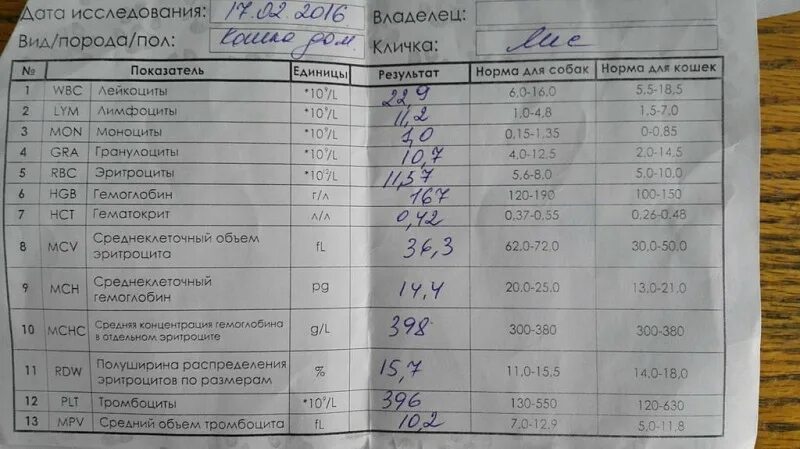 Дата исследования: 17.02.2016 Владелец:
Вид/порода/пол: Кошка дом. Кличка: Лис
№ Показатель Единицы Результат Норма для собак Норма для кошек
1 WBC Лейкоциты *10⁹/L 22,9 6,0-16,0 5,5-18,5
2 LYM Лимфоциты *10⁹/L 11,2 1,0-4,8 1,5-7,0
3 MON Моноциты *10⁹/L 1,0 0,15-1,35 0-0,85
4 GRA Гранулоциты *10⁹/L 10,7 4,0-12,5 2,0-14,5
5 RBC Эритроциты *10⁹/L 11,57 5,6-8,0 5,0-10,0
6 HGB Гемоглобин г/л 167 120-190 100-150
7 HCT Гематокрит л/л 0,42 0,37-0,55 0,26-0,48
8 MCV Среднеклеточный объем эритроцита fL 36,3 62,0-72,0 30,0-50,0
9 MCH Среднеклеточный гемоглобин pg 14,4 20,0-25,0 13,0-21,0
10 MCHC Средняя концентрация гемоглобина в отдельном эритроците g/L 398 300-380 300-380
11 RDW Полуширина распределения эритроцитов по размерам % 15,7 11,0-15,5 14,0-18,0
12 PLT Тромбоциты *10⁹/L 396 130-550 120-630
13 MPV Средний объем тромбоцита fL 10,2 7,0-12,9 5,0-11,8